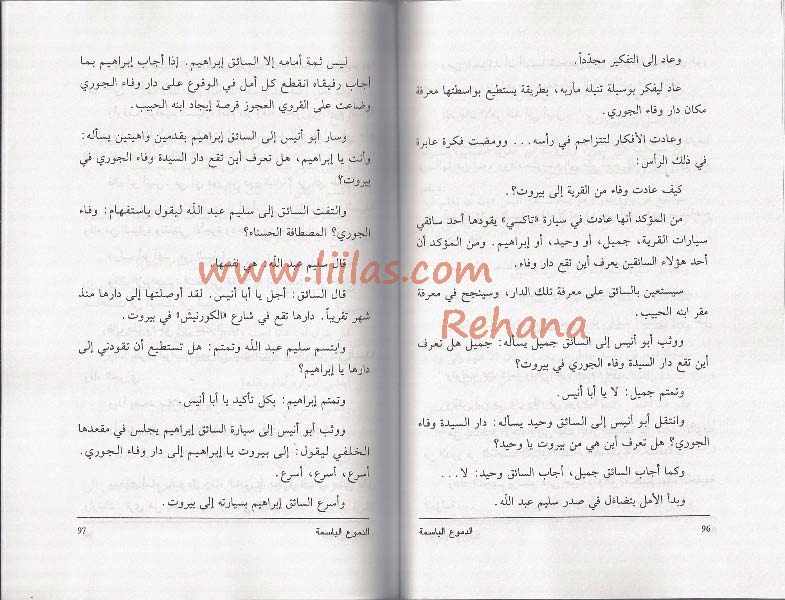 وعاد إلى التفكير مجدّداً.
عاد ليفكر بوسيلة تنيله مآربه، بطريقة يستطيع بواسطتها معرفة
مكان دار وفاء الجوري.
وعادت الأفكار لتتزاحم في رأسه... وومضت فكرة عابرة
في ذلك الرأس:
كيف عادت وفاء من القرية إلى بيروت؟.
من المؤكد أنها عادت في سيارة «تاكسي» يقودها أحد سائقي
سيارات القرية، جميل، أو وحيد، أو إبراهيم. ومن المؤكد أن
أحد هؤلاء السائقين يعرف أين تقع دار وفاء.
سيستعين بالسائق على معرفة تلك الدار، وسينجح في معرفة
مقر ابنه الحبيب.
ووثب أبو أنيس إلى السائق جميل يسأله: جميل هل تعرف
أين تقع دار السيدة وفاء الجوري في بيروت؟
وتمتم جميل: لا يا أبا أنيس.
وانتقل أبو أنيس إلى السائق وحيد يسأله: دار السيدة وفاء
الجوري؟ هل تعرف أين هي من بيروت يا وحيد؟
وكما أجاب السائق جميل، أجاب السائق وحيد: لا...
وبدأ الأمل يتضاءل في صدر سليم عبد الله.
96
الدموع الباسمة
ليس ثمة أمامه إلا السائق إبراهيم. إذا أجاب إبراهيم بما
أجاب رفيقاه انقطع كل أمل في الوقوع على دار وفاء الجوري
وضاعت على القروي العجوز فرصة إيجاد ابنه الحبيب.
وسار أبو أنيس إلى السائق إبراهيم بقدمين واهيتين يسأله:
وأنت يا إبراهيم، هل تعرف أين تقع دار السيدة وفاء الجوري في
بيروت؟
والتفت السائق إلى سليم عبد الله ليقول باستفهام: وفاء
الجوري؟ المصطافة الحسناء؟
قال سليم عبد الله: هي نفسها.
قال السائق: أجل يا أبا أنيس. لقد أوصلتها إلى دارها منذ
شهر تقريباً. دارها تقع في شارع «الكورنيش» في بيروت.
وابتسم سليم عبد الله وتمتم: هل تستطيع أن تقودني إلى
دارها يا إبراهيم؟
وتمتم إبراهيم: بكل تأكيد يا أبا أنيس.
ووثب أبو أنيس إلى سيارة السائق إبراهيم يجلس في مقعدها
الخلفي ليقول: إلى بيروت يا إبراهيم إلى دار وفاء الجوري.
أسرع، أسرع، أسرع.
وأسرع السائق إبراهيم بسيارته إلى بيروت.
97
الدموع الباسمة
www.liilas.com
Rehana